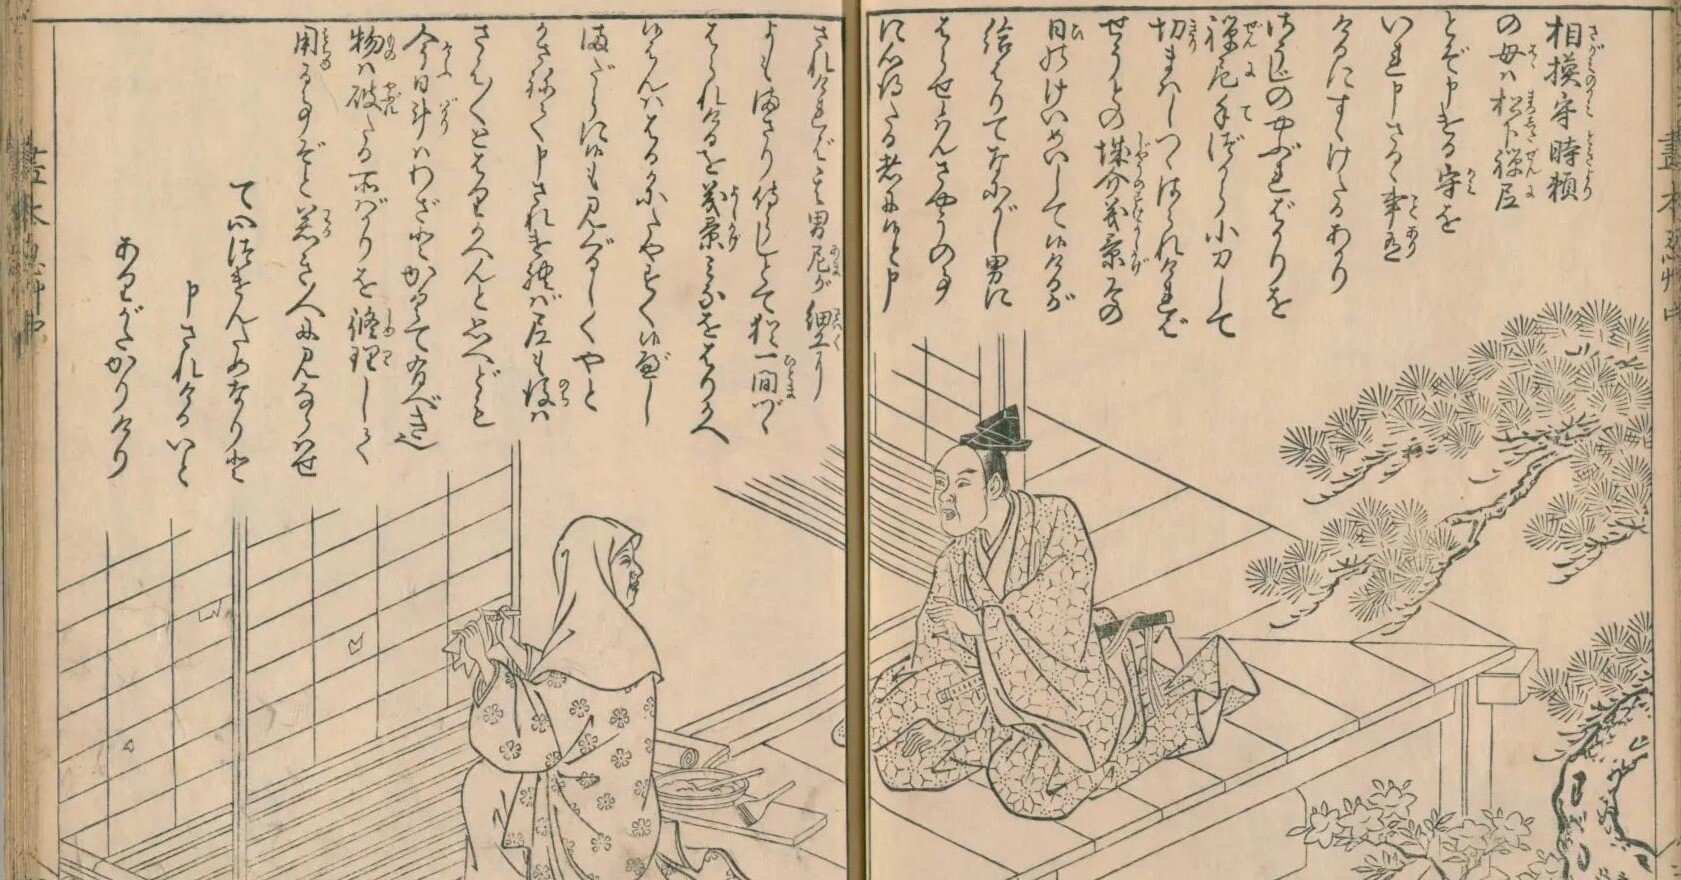 相摸守時頼
の母ハ松下禅尼
とぞ申ける守を
いれ申さるゝ事有
けるにすゝけたるあかり
さうじのやぶればかりを
禅尼手づから小刀して
切まはしつゝはられければ
せうとの城介義景その
日のけいめいして候けるが
給はりてなにがし男に
はらせ候はんさやうの事
に心得たる者に候と申
されければ其男尼が細工に
よもまさり侍らじとて猶一間づゝ
はられけるを義景みなをはりかへ
候はんハはるかにたやすく候べし
まだらに候も見ぐるしくやと
かさねて申されければ尼も後ハ
さは〳〵とはりかへんと思へども
今日斗ハわざとかくて有べき也
物ハ破たる所ばかりを修理して
用る事ぞと若き人に見ならはせ
て心づけんためなりと
申されけるいと
ありがたかりけり